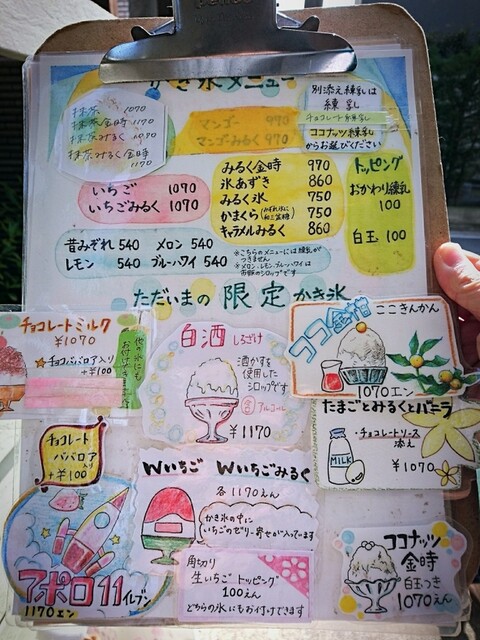 かき氷メニュー
抹茶 1070
抹茶金時 1170
抹茶みるく 1090
抹茶みるく金時
1170
マンゴー 970
マンゴーみるく 990
別添え練乳は
練乳
チョコレート練乳
ココナッツ練乳
からお選びください
いちご 1070
いちごみるく 1090
みるく金時 970
氷あずき 860
みるく氷 750
かまくら 750
キャラメルみるく 860
トッピング
おかわり練乳
100
白玉 100
昔みぞれ 540 メロン 540
レモン 540 ブルーハワイ 540
※こちらのメニューには練乳が
つきません
※メロン、レモン、ブルーハワイは
市販のシロップです
ただいまの 限定 かき氷
チョコレートミルク
¥1070
★チョコババロア入り
+¥100
他の氷にも
お付けできます
白酒 しろざけ
酒かすを
使用した
シロップです
含 アルコール
¥1170
ココ金柑
ここきんかん
1070エン
たまごとみるくとバニラ
・チョコレートソース
添え
MILK
¥1070
チョコレート
ババロア
入り
+¥100
Wいちご Wいちごみるく
各1170えん
かき氷の中に
いちごのゼリー寄せが入ってます
アポロ11イレブン
1170エン
角切り
生いちごトッピング
100えん
どちらの氷にもお付けできます
ココナッツ
金時
白玉つき
1070えん